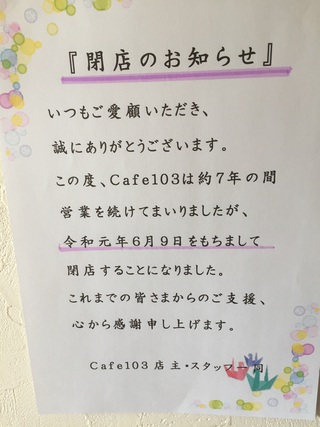 『閉店のお知らせ』
いつもご愛顧いただき、
誠にありがとうございます。
この度、Cafe103は約7年の間
営業を続けてまいりましたが、
令和元年6月9日をもちまして
閉店することになりました。
これまでの皆さまからのご支援、
心から感謝申し上げます。
Cafe103 店主・スタッフ一同